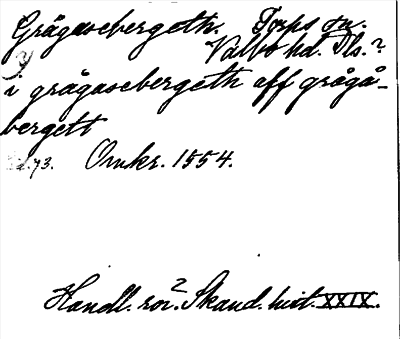 Grågåsebergeth. Torps sn.
Valbo hd. Dls.?
y
i grågåsebergeth aff grågå-
bergett
Sd. 73. Omkr. 1554.
Handl. rör. Skand. hist. XXIX.